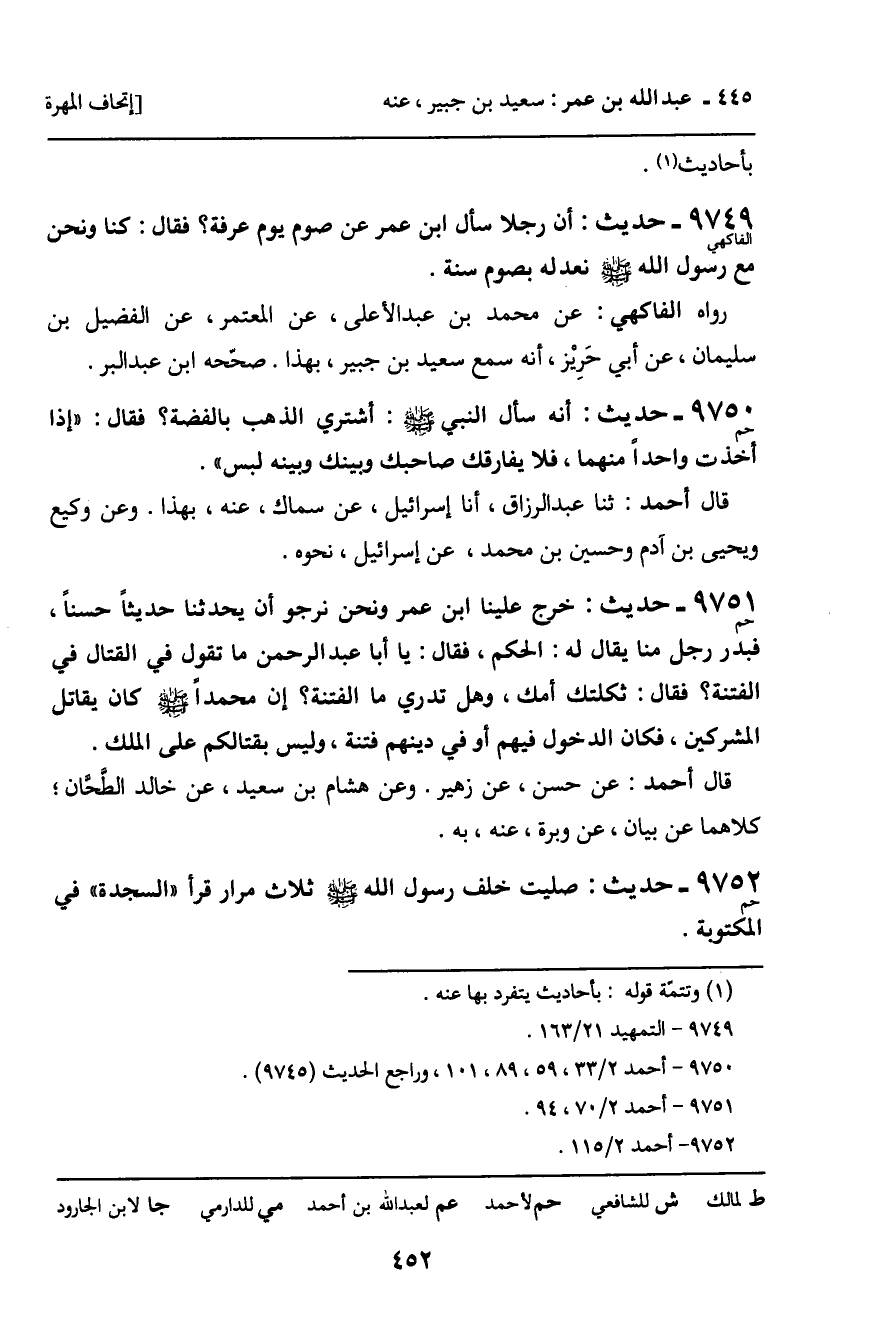 ٤٤٥ ـ عبدالله بن عمر : سعيد بن جبير ، عنه [إتحاف المهرة
بأحاديث(١) .
٩٧٤٩ ـ حديث : أن رجلا سأل ابن عمر عن صوم يوم عرفة؟ فقال : كنا ونحن
الفاكهي
مع رسول الله ﷺ نعدله بصوم سنة .
رواه الفاكهي : عن محمد بن عبدالأعلى ، عن المعتمر ، عن الفضيل بن
سليمان ، عن أبي حَرِيْز ، أنه سمع سعيد بن جبير ، بهذا . صحّحه ابن عبدالبر .
٩٧٥٠ ـ حديث : أنه سأل النبي ﷺ : أشتري الذهب بالفضة؟ فقال : «إذا
حم
أخذت واحداً منهما ، فلا يفارقك صاحبك وبينك وبينه لبس» .
قال أحمد : ثنا عبدالرزاق ، أنا إسرائيل ، عن سماك ، عنه ، بهذا . وعن وكيع
ويحيى بن آدم وحسين بن محمد ، عن إسرائيل ، نحوه .
٩٧٥١ ـ حديث : خرج علينا ابن عمر ونحن نرجو أن يحدثنا حديثاً حسناً ،
حم
فبدر رجل منا يقال له : الحكم ، فقال : يا أبا عبدالرحمن ما تقول في القتال في
الفتنة؟ فقال : ثكلتك أمك ، وهل تدري ما الفتنة؟ إن محمداً ﷺ كان يقاتل
المشركين ، فكان الدخول فيهم أو في دينهم فتنة ، وليس بقتالكم على الملك .
قال أحمد : عن حسن ، عن زهير . وعن هشام بن سعيد ، عن خالد الطَّحَّان ؛
كلاهما عن بيان ، عن وبرة ، عنه ، به .
٩٧٥٢ ـ حديث : صليت خلف رسول الله ﷺ ثلاث مرار قرأ «السجدة» في
حم
المكتوبة .
(١) وتتمّة قوله : بأحاديث يتفرد بها عنه .
٩٧٤٩ – التمهيد ١٦٣/٢١ .
٩٧٥٠ – أحمد ٣٣/٢ ، ٥٩ ، ٨٩ ، ١٠١ ، وراجع الحديث (٩٧٤٥) .
٩٧٥١ – أحمد ٧٠/٢ ، ٩٤ .
٩٧٥٢– أحمد ١١٥/٢ .
ط لمالك ش للشافعي حم لأحمد عم لعبدالله بن أحمد مي للدارمي جا لابن الجارود
٤٥٢